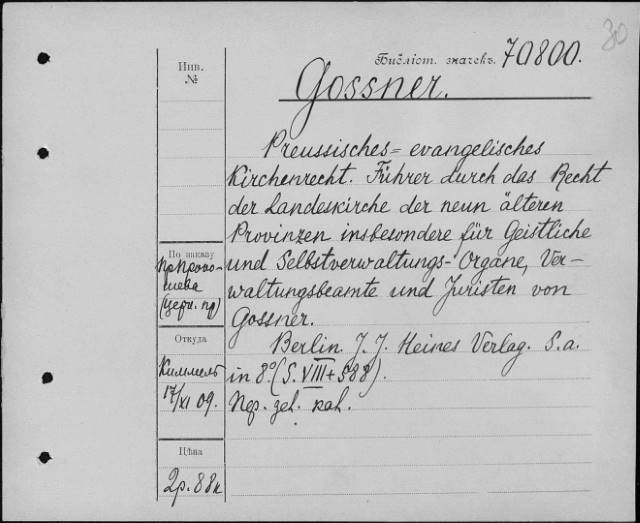 30
Библіот. значекъ. 70800.
Инв.
№
Gossner.
Preussisches=evangelisches
Kirchenrecht. Führer durch das Recht
der Landeskirche der neun älteren
Provinzen insbesondere für Geistliche
und Selbstverwaltungs-Organe, Ver-
waltungsbeamte und Juristen von
Gossner.
Berlin. J. J. Heines Verlag. S.a.
in 8° (S. VIII + 588).
По заказу
(церк. пр)
Откуда
Киммель
17/XI 09.
Цѣна
2р. 88к